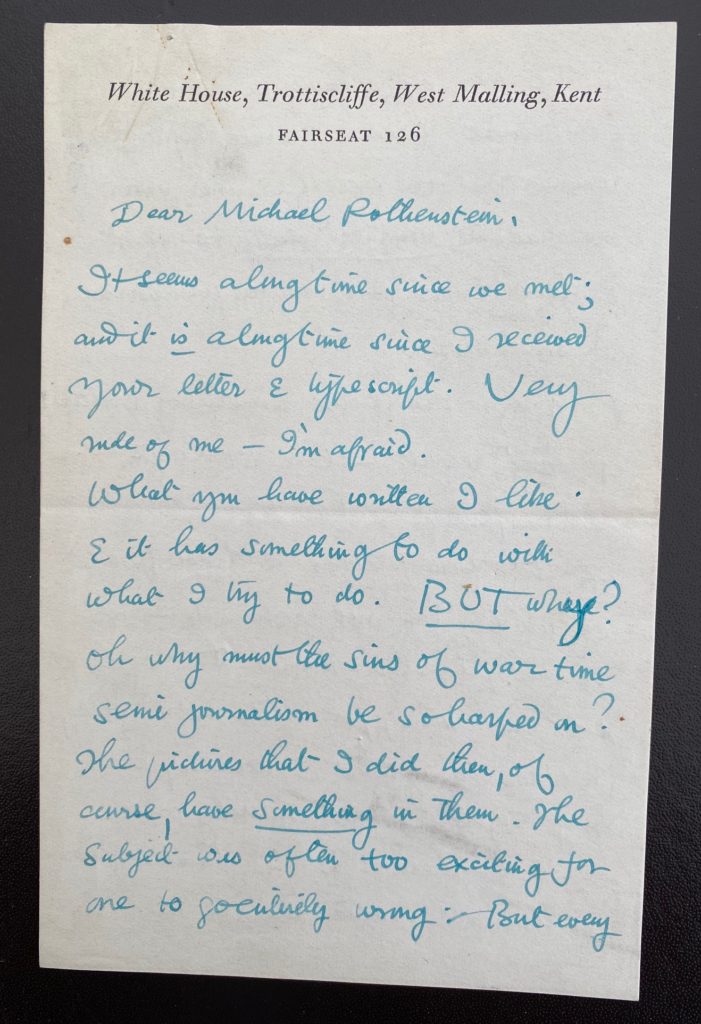 White House, Trottiscliffe, West Malling, Kent
FAIRSEAT 126
Dear Michael Rothenstein,
It seems a long time since we met;
and it is a long time since I received
your letter & typescript. Very
rude of me — I'm afraid.
What you have written I like.
& it has something to do with
what I try to do. BUT why?
oh why must the sins of war time
semi journalism be so harped on?
The pictures that I did then, of
course, have something in them. The
subject was often too exciting for
one to go entirely wrong :- But every